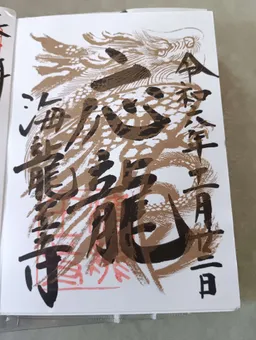 令和八年二月廿二日
応龍
海龍王寺